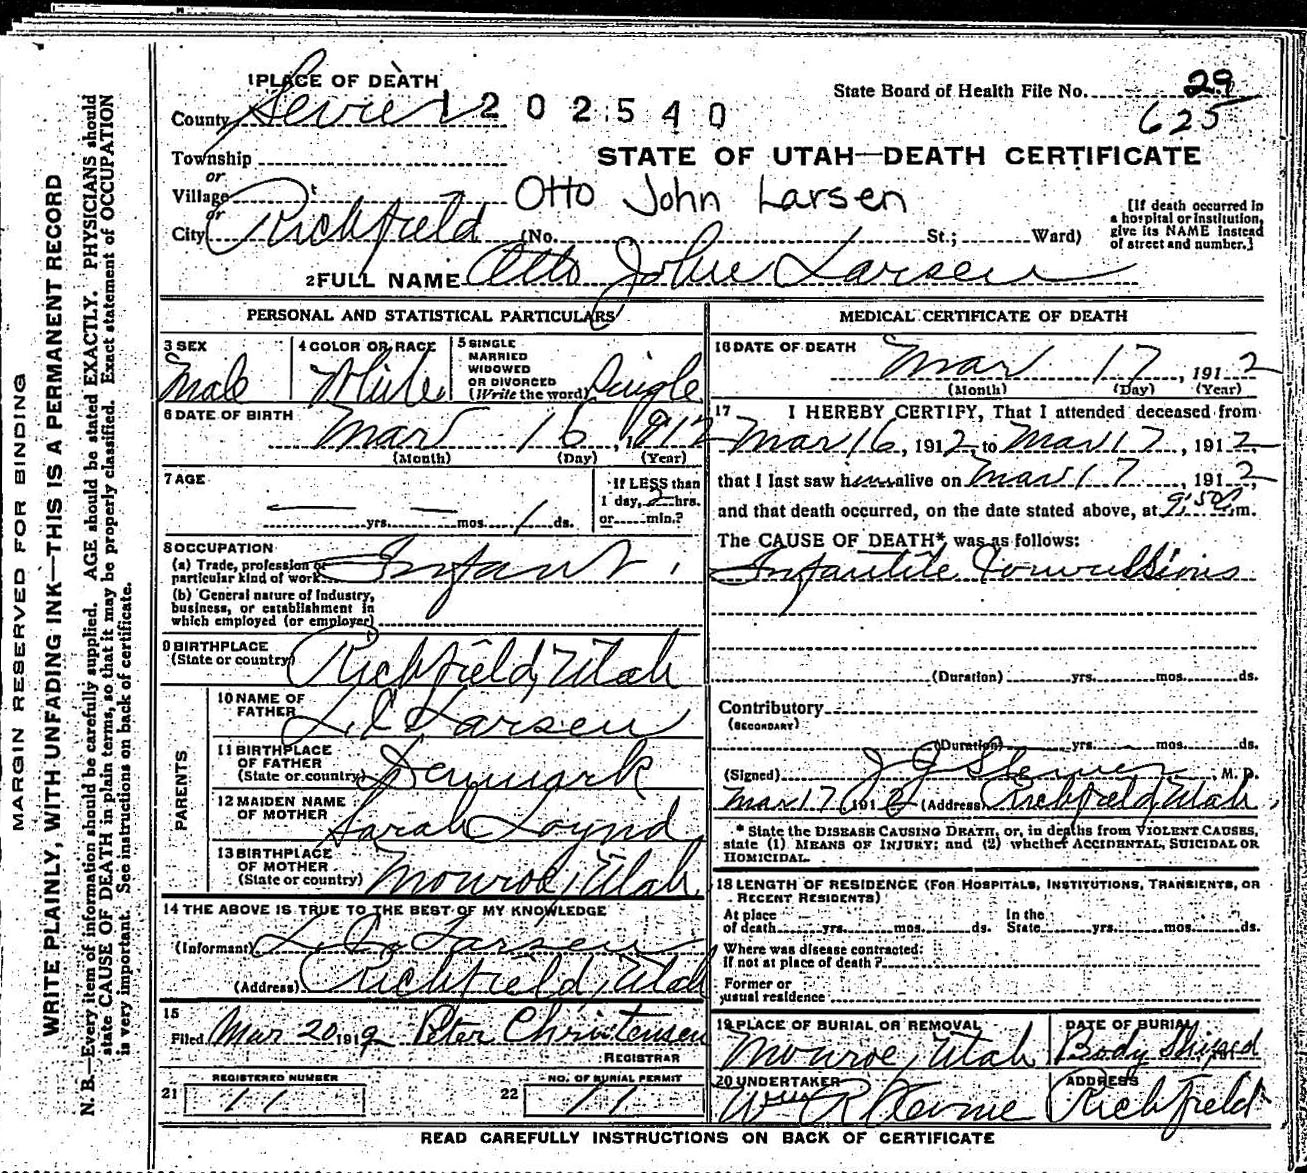 1 PLACE OF DEATH
County Sevier 1202540
State Board of Health File No. 29
625
Township
or
STATE OF UTAH—DEATH CERTIFICATE
Village
or
Otto John Larsen
City Richfield (No. St.; Ward)
[If death occurred in a hospital or institution, give its NAME instead of street and number.]
2 FULL NAME Otto John Larsen
PERSONAL AND STATISTICAL PARTICULARS
3 SEX
Male
4 COLOR OR RACE
White
5 SINGLE
MARRIED
WIDOWED
OR DIVORCED
(Write the word) Single
6 DATE OF BIRTH
Mar 16, 1912
(Month) (Day) (Year)
7 AGE
— yrs. — mos. 1 ds.
If LESS than
1 day, 2 hrs.
or min.?
8 OCCUPATION
(a) Trade, profession or
particular kind of work Infant
(b) General nature of Industry,
business, or establishment in
which employed (or employer)
9 BIRTHPLACE
(State or country) Richfield, Utah
PARENTS
10 NAME OF
FATHER L C Larsen
11 BIRTHPLACE
OF FATHER
(State or country) Denmark
12 MAIDEN NAME
OF MOTHER Sarah Loynd
13 BIRTHPLACE
OF MOTHER
(State or country) Monroe, Utah
14 THE ABOVE IS TRUE TO THE BEST OF MY KNOWLEDGE
(Informant) L. C. Larsen
(Address) Richfield, Utah
15
Filed Mar 20 1912 Peter Christensen
REGISTRAR
21 REGISTERED NUMBER
11
22 NO. OF BURIAL PERMIT
11
MEDICAL CERTIFICATE OF DEATH
16 DATE OF DEATH
Mar 17, 1912
(Month) (Day) (Year)
17 I HEREBY CERTIFY, That I attended deceased from
Mar 16, 1912, to Mar 17, 1912,
that I last saw him alive on Mar 17, 1912,
and that death occurred, on the date stated above, at 9:50 m.
The CAUSE OF DEATH* was as follows:
Infantile Convulsions
(Duration) yrs. mos. ds.
Contributory
(SECONDARY)
(Duration) yrs. mos. ds.
(Signed) J J Steiner, M. D.
Mar 17, 1912 (Address) Richfield, Utah
* State the DISEASE CAUSING DEATH, or, in deaths from VIOLENT CAUSES,
state (1) MEANS OF INJURY; and (2) whether ACCIDENTAL, SUICIDAL OR
HOMICIDAL.
18 LENGTH OF RESIDENCE (FOR HOSPITALS, INSTITUTIONS, TRANSIENTS, OR
RECENT RESIDENTS)
At place
of death yrs. mos. ds.
In the
State yrs. mos. ds.
Where was disease contracted
if not at place of death?
Former or
usual residence
19 PLACE OF BURIAL OR REMOVAL
Monroe, Utah
DATE OF BURIAL
Body Shipped
20 UNDERTAKER
Wm R
ADDRESS
Richfield
READ CAREFULLY INSTRUCTIONS ON BACK OF CERTIFICATE
MARGIN RESERVED FOR BINDING
WRITE PLAINLY, WITH UNFADING INK—THIS IS A PERMANENT RECORD
N. B.—Every item of information should be carefully supplied. AGE should be stated EXACTLY. PHYSICIANS should
state CAUSE OF DEATH in plain terms, so that it may be properly classified. Exact statement of OCCUPATION
is very important. See instructions on back of certificate.